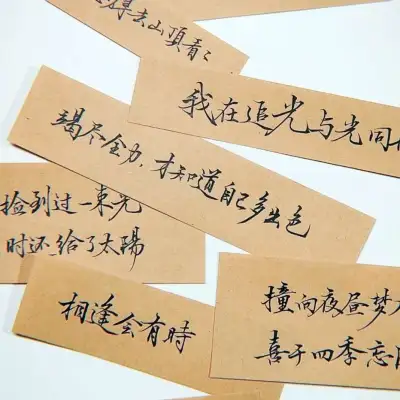 得去山頂看看
我在追光与光同
竭尽全力，才知道自己多出色
捡到过一束光
时还给了太陽
相逢会有時
撞向夜昼梦
喜于四季忘